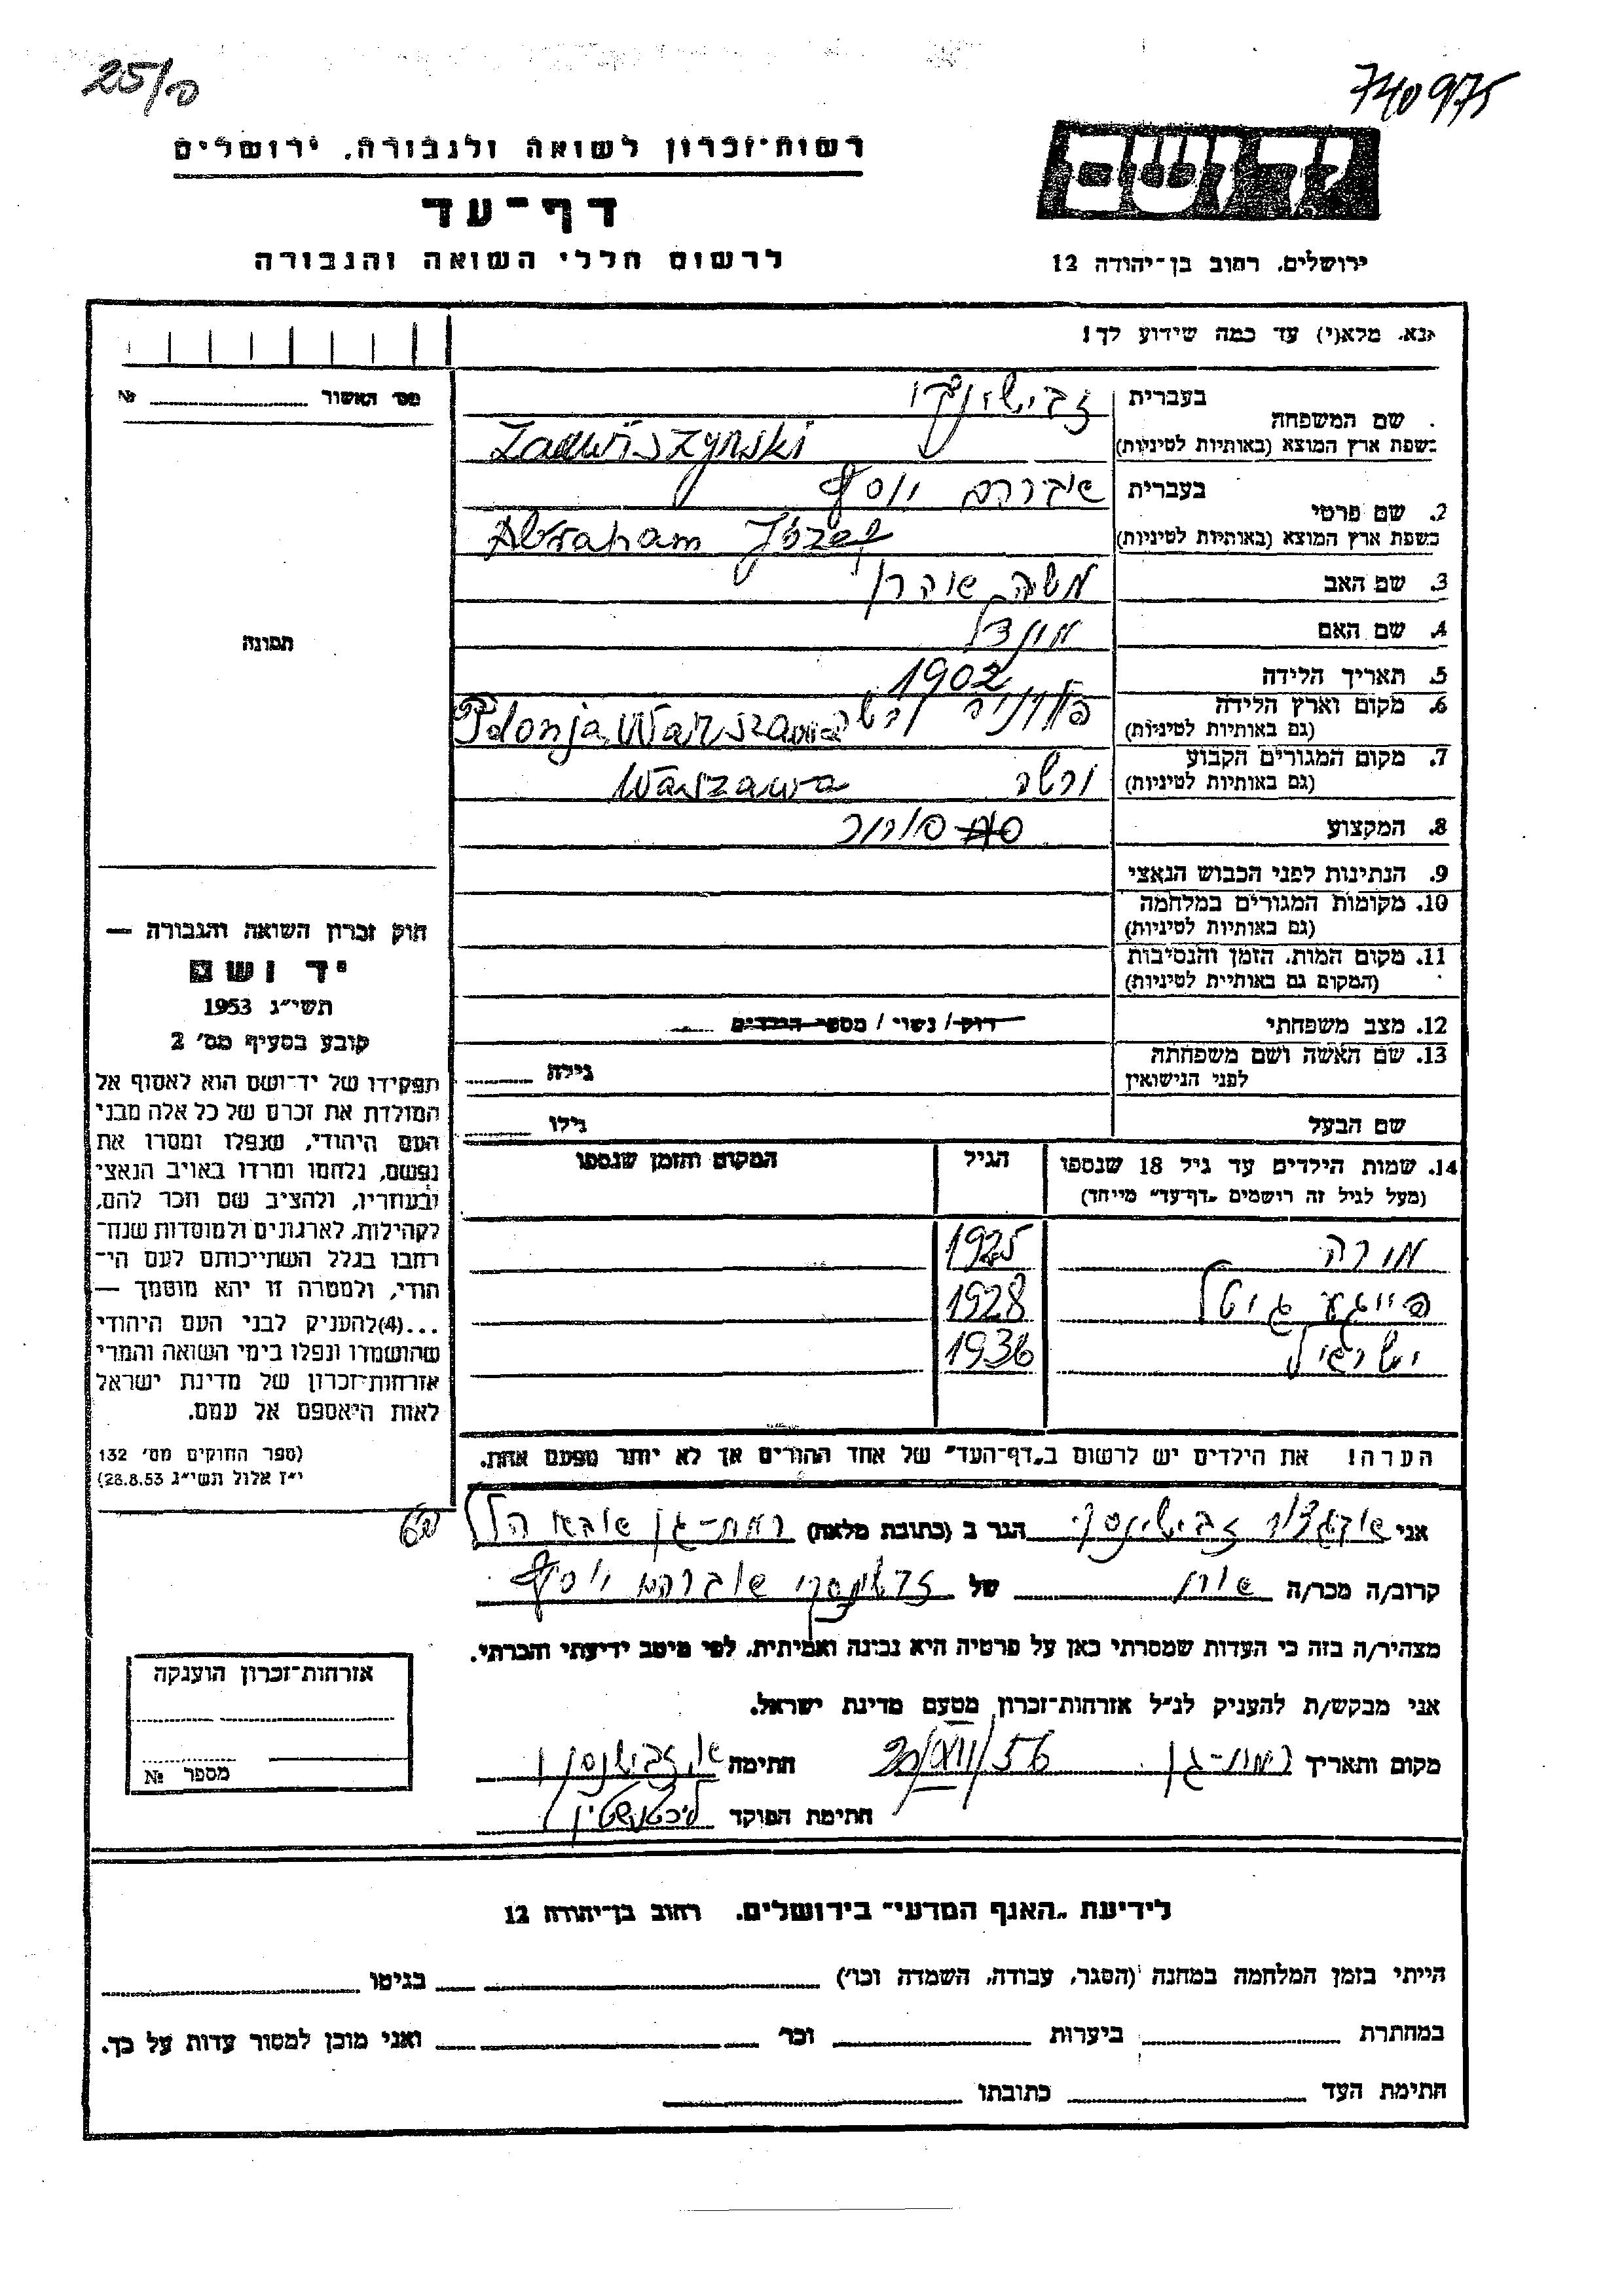 25/פ
740975
רשות-זכרון לשואה ולגבורה, ירושלים
דף-עד
לרשום חללי השואה והגבורה
יד ושם
ירושלים, רחוב בן-יהודה 12
נא, מלא(י) עד כמה שידוע לך!
מס' האשור № 
שם המשפחה בעברית
בשפת ארץ המוצא (באותיות לטיניות)
2. שם פרטי בעברית אברהם יוסף
בשפת ארץ המוצא (באותיות לטיניות) Abraham Józef
3. שם האב משה אהרן
4. שם האם
תמונה
5. תאריך הלידה 1902
6. מקום וארץ הלידה פולניה ורשה
(גם באותיות לטיניות) Polonja Warszawa
7. מקום המגורים הקבוע ורשה
(גם באותיות לטיניות) Warszawa
8. המקצוע סוחר
9. הנתינות לפני הכבוש הנאצי
10. מקומות המגורים במלחמה
(גם באותיות לטיניות)
11. מקום המות, הזמן והנסיבות
(המקום גם באותיות לטיניות)
12. מצב משפחתי רוק/ נשוי / מספר הילדים
13. שם האשה ושם משפחתה
לפני הנישואין גילה
שם הבעל גילו
14. שמות הילדים עד גיל 18 שנספו הגיל המקום והזמן שנספו
(מעל לגיל זה רושמים "דף-עד" מייחד)
1925
פייגע גיטל 1928
ישראל 1936
הערה! את הילדים יש לרשום ב"דף-העד" של אחד ההורים אך לא יותר מפעם אחת.
חוק זכרון השואה והגבורה —
יד ושם
תשי"ג 1953
קובע בסעיף מס' 2
תפקידו של יד-ושם הוא לאסוף אל
המולדת את זכרם של כל אלה מבני
העם היהודי, שנפלו ומסרו את
נפשם, נלחמו ומרדו באויב הנאצי
ובעוזריו, ולהציב שם וזכר להם,
לקהילות, לארגונים ולמוסדות שנח־
רבו בגלל השתייכותם לעם הי־
הודי, ולמטרה זו יהא מוסמך —
...(4)להעניק לבני העם היהודי
שהושמדו ונפלו בימי השואה והמרי
אזרחות-זכרון של מדינת ישראל
לאות היאספם אל עמם.
(ספר החוקים מס' 132
י"ז אלול תשי"ג 28.8.53)
אני הגר ב (כתובת מלאה) רמת-גן אבא הלל 60
קרוב/ה מכר/ה אח של אברהם יוסף
מצהיר/ה בזה כי העדות שמסרתי כאן על פרטיה היא נכונה ואמיתית, לפי מיטב ידיעתי והכרתי.
אני מבקש/ת להעניק לנ"ל אזרחות-זכרון מטעם מדינת ישראל.
מקום ותאריך רמת-גן חתימה
חתימת הפוקד ליכטנשטיין
אזרחות-זכרון הוענקה
מספר №
לידיעת "האגף המדעי" בירושלים, רחוב בן-יהודה 12
הייתי בזמן המלחמה במחנה (הסגר, עבודה, השמדה וכו') בגיטו
במחתרת ביערות וכו' ואני מוכן למסור עדות על כך.
חתימת העד כתובתו